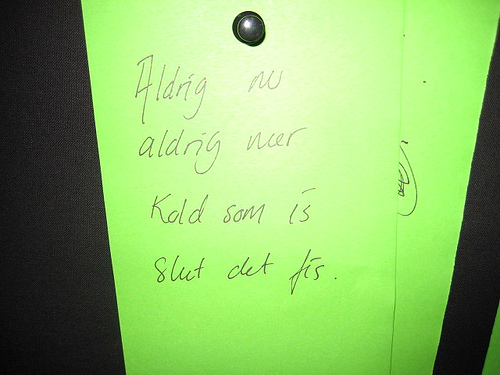 Aldrig nu
aldrig mer
Kold som is
Slut det fis.